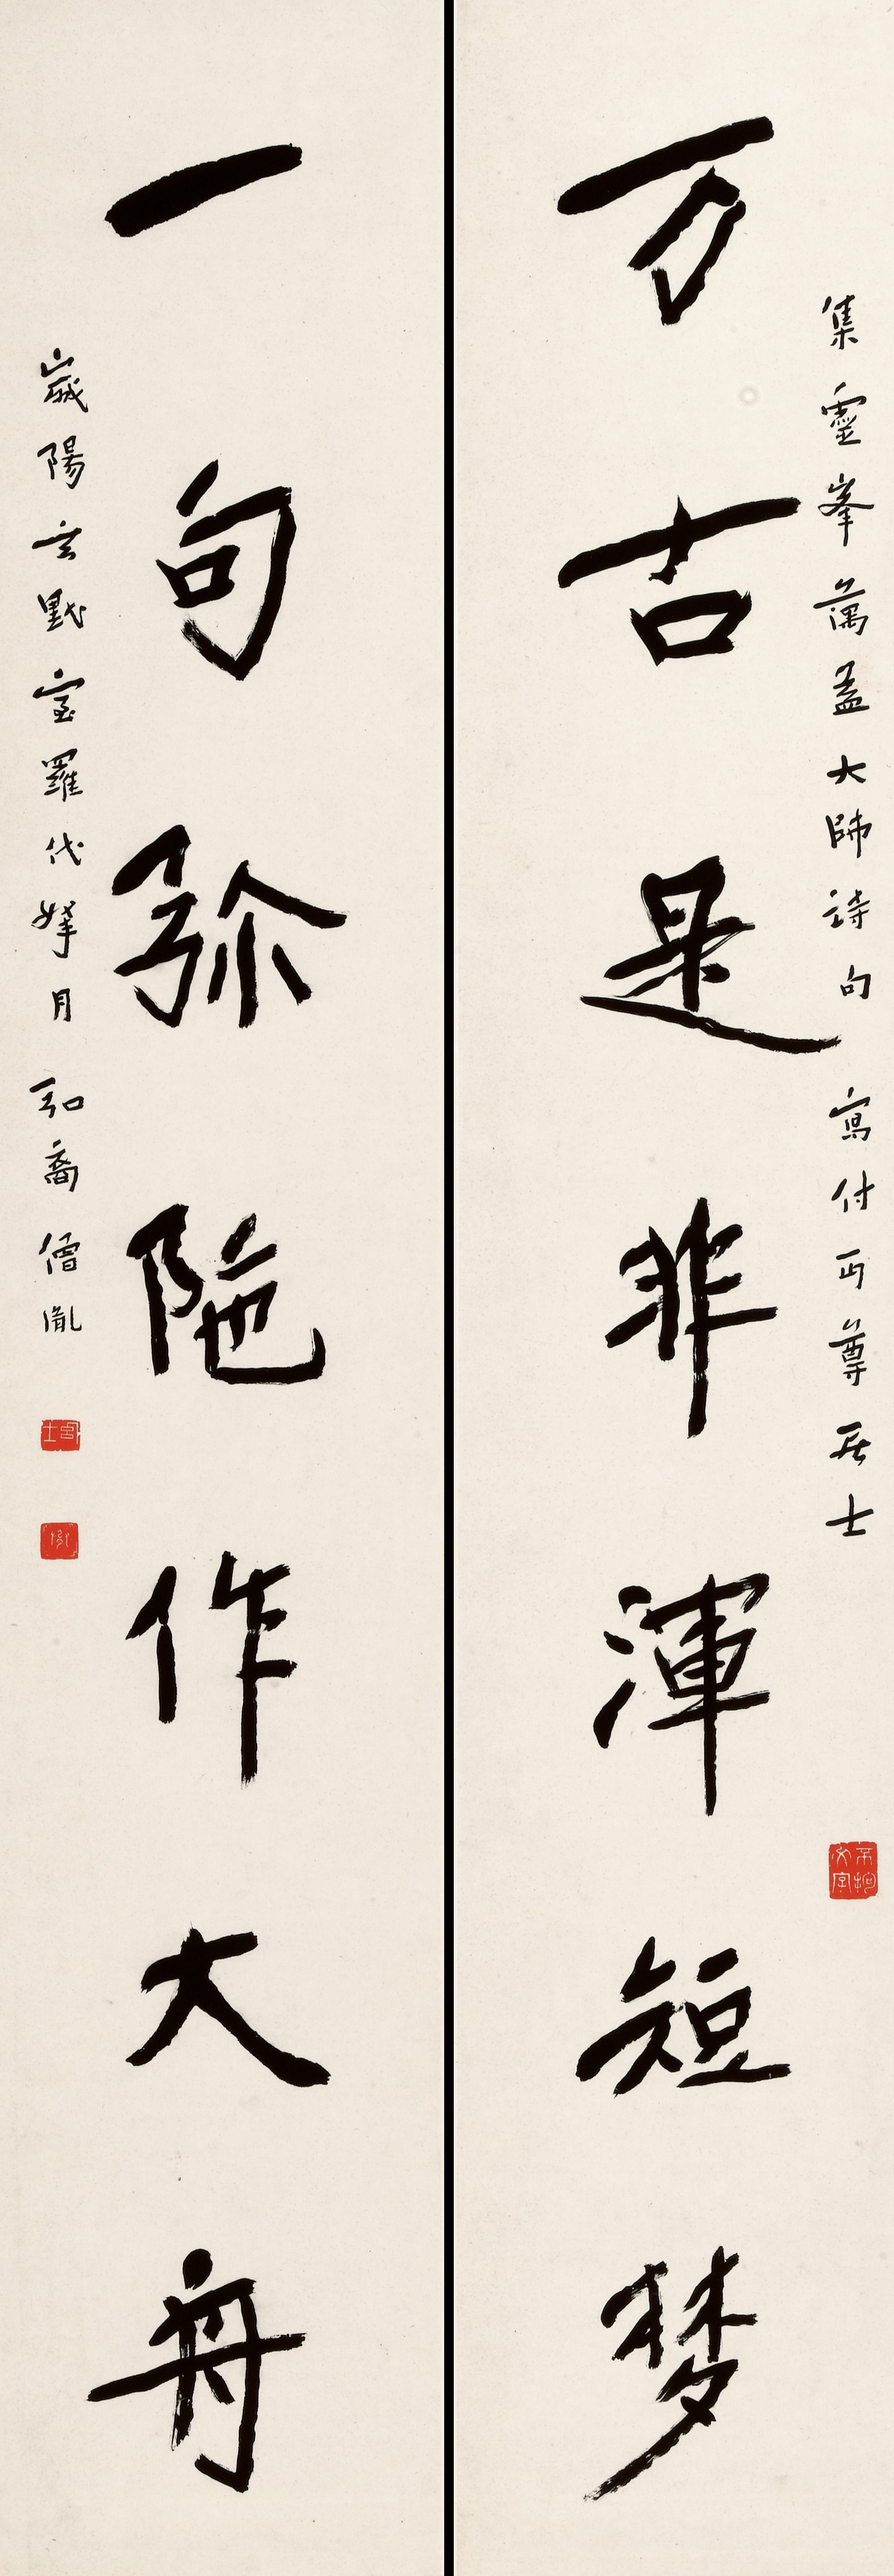 集靈峯蕅益大師詩句 寫付丏尊居士
万古是非渾短梦
一句弥陁作大舟
歲陽玄黓室羅伐拏月 弘裔僧胤